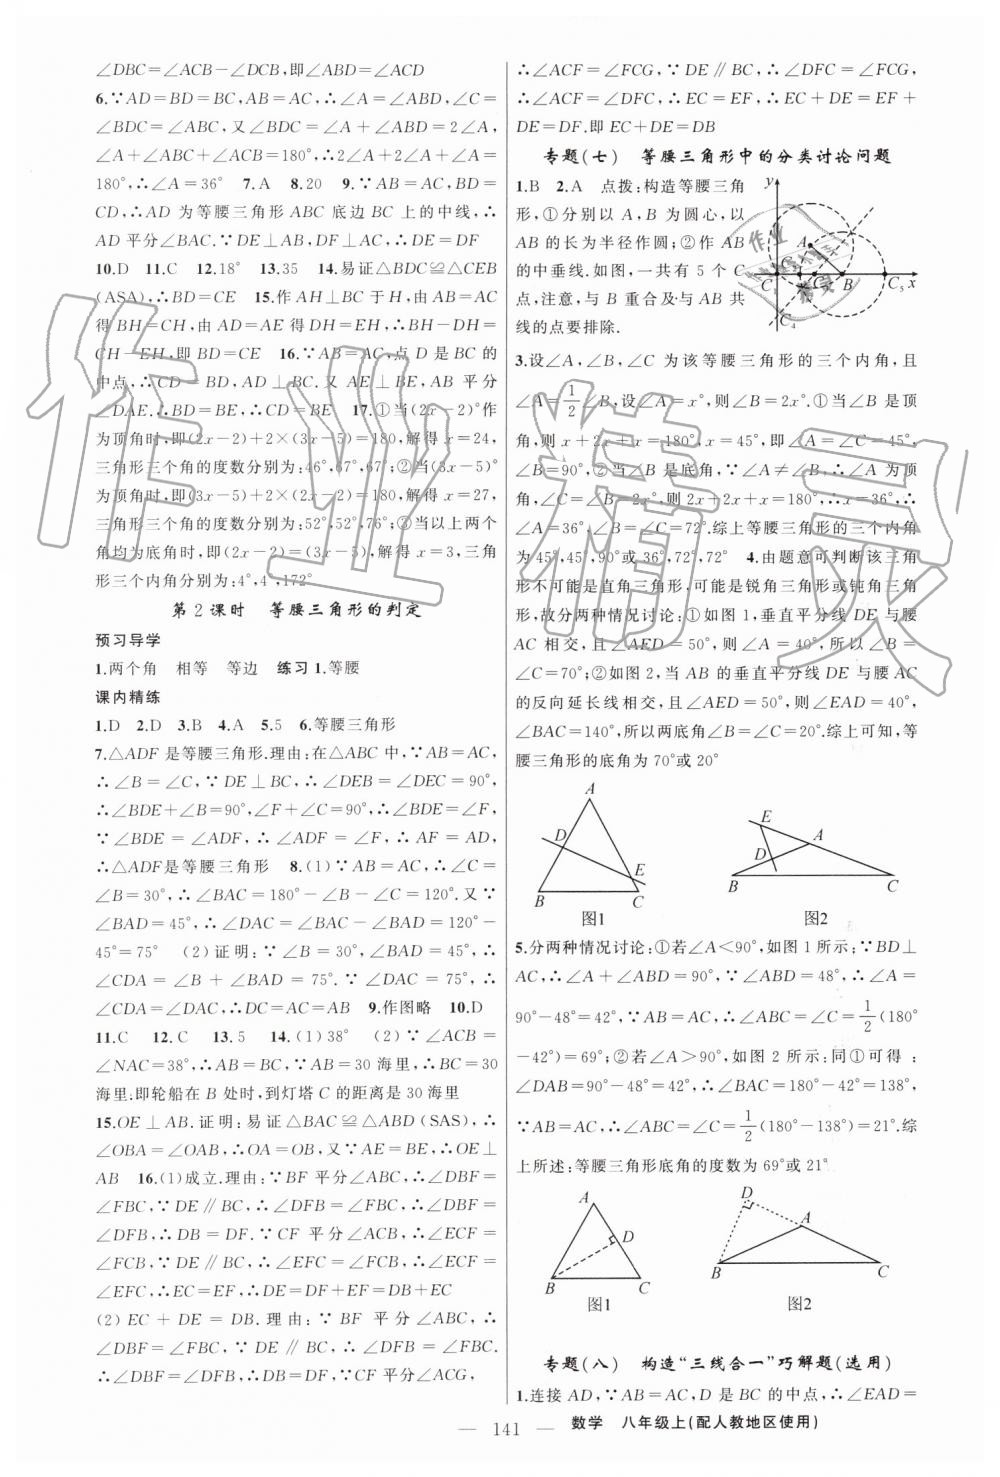 ∠DBC=∠ACB-∠DCB,即∠ABD=∠ACD
6.∵AD=BD=BC,AB=AC,∴∠A=∠ABD,∠C=
∠BDC=∠ABC,又∠BDC=∠A+∠ABD=2∠A,
∠A+∠ABC+∠ACB=180°,∴∠A+2∠A+2∠A=
180°,∴∠A=36° 7.A 8.20 9.∵AB=AC,BD=
CD,∴AD 为等腰三角形 ABC 底边 BC 上的中线,∴
AD 平分∠BAC.∵DE⊥AB,DF⊥AC,∴DE=DF
10.D 11.C 12.18° 13.35 14.易证△BDC≌△CEB
(ASA),∴BD=CE 15.作 AH⊥BC 于 H,由 AB=AC
得 BH=CH,由 AD=AE 得 DH=EH,∴BH-DH=
CH-EH,即 BD=CE 16.∵AB=AC,点 D 是 BC 的
中点,∴CD=BD,AD⊥BC.又 AE⊥BE,AB 平分
∠DAE.∴BD=BE,∴CD=BE 17.①当(2x-2)°作
为顶角时,即(2x-2)+2×(3x-5)=180,解得 x=24,
三角形三个角的度数分别为:46°,67°,67°;②当(3x-5)°
为顶角时,即(3x-5)+2(2x-2)=180,解得 x=27,
三角形三个角的度数分别为:52°,52°,76°;③当以上两个
角均为底角时,即(2x-2)=(3x-5),解得 x=3,三角
形三个内角分别为:4°,4°,172°
第 2 课时 等腰三角形的判定
预习导学
1.两个角 相等 等边 练习 1.等腰
课内精练
1.D 2.D 3.B 4.A 5.5 6.等腰三角形
7.△ADF 是等腰三角形.理由:在△ABC 中,∵AB=AC,
∴∠B=∠C,∵DE⊥BC,∴∠DEB=∠DEC=90°,
∴∠BDE+∠B=90°,∠F+∠C=90°,∴∠BDE=∠F,
∵∠BDE=∠ADF,∴∠ADF=∠F,∴AF=AD,
∴△ADF是等腰三角形 8.(1)∵AB=AC,∴∠C=
∠B=30°,∴∠BAC=180°-∠B-∠C=120°.又∵
∠BAD=45°,∴∠DAC=∠BAC-∠BAD=120°-
45°=75° (2)证明:∵∠B=30°,∠BAD=45°,∴
∠CDA=∠B+∠BAD=75°.∵∠DAC=75°,∴
∠CDA=∠DAC,∴DC=AC=AB 9.作图略 10.D
11.C 12.C 13.5 14.(1)38° (2)∵∠ACB=
∠NAC=38°,∴AB=BC,∵AB=30 海里,∴BC=30
海里.即轮船在 B 处时,到灯塔 C 的距离是 30 海里
15.OE⊥AB.证明:易证△BAC≌△ABD(SAS),∴
∠OBA=∠OAB,∴OA=OB,又∵AE=BE,∴OE⊥
AB 16.(1)成立.理由:∵BF 平分∠ABC,∴∠DBF=
∠FBC,∵DE∥BC,∴∠DFB=∠FBC,∴∠DBF=
∠DFB,∴DB=DF.∵CF 平分∠ACB,∴∠ECF=
∠FCB,∵DE∥BC,∴∠EFC=∠FCB,∴∠ECF=
∠EFC,∴EC=EF,∴DE=DF+EF=DB+EC
(2)EC+DE=DB.理由:∵BF 平分∠ABC,∴
∠DBF=∠FBC,∵DE∥BC,∴∠DFB=∠FBC,
∴∠DBF=∠DFB,∴DB=DF,∵CF 平分∠ACG,
∴∠ACF=∠FCG,∵DE∥BC,∴∠DFC=∠FCG,
∴∠ACF=∠DFC,∴EC=EF,∴EC+DE=EF+
DE=DF.即 EC+DE=DB
专题(七) 等腰三角形中的分类讨论问题
1.B 2.A 点拨:构造等腰三角
形,①分别以 A,B 为圆心,以
AB 的长为半径作圆;②作 AB
的中垂线.如图,一共有 5 个 C
点,注意,与 B 重合及与 AB 共
线的点要排除.
y A B C₅ x C₄
3.设∠A,∠B,∠C 为该等腰三角形的三个内角,且
∠A=1/2∠B,设∠A=x°,则∠B=2x°.①当∠B 是顶
角,则 x+2x+x=180°,x=45°,即∠A=∠C=45°,
∠B=90°,②当∠B 是底角,∵∠A≠∠B,∴∠A 为顶
角,∠C=∠B=2x°,则 2x+2x+x=180°,∴x=36°,∴
∠A=36°,∠B=∠C=72°.综上等腰三角形的三个内角
为 45°,45°,90°或 36°,72°,72° 4.由题意可判断该三角
形不可能是直角三角形,可能是锐角三角形或钝角三角
形,故分两种情况讨论:①如图 1,垂直平分线 DE 与腰
AC 相交,且∠AED=50°,则∠A=40°,∴∠B=
∠C=70°;②如图 2,当 AB 的垂直平分线 DE 与腰 AC
的反向延长线相交,且∠AED=50°,则∠EAD=40°,
∠BAC=140°,所以两底角∠B=∠C=20°.综上可知,等
腰三角形的底角为 70°或 20°
A D E B C 图1
E A D B C 图2
5.分两种情况讨论:①若∠A<90°,如图 1 所示:∵BD⊥
AC,∴∠A+∠ABD=90°,∵∠ABD=48°,∴∠A=
90°-48°=42°,∵AB=AC,∴∠ABC=∠C=1/2(180°
-42°)=69°;②若∠A>90°,如图 2 所示:同①可得:
∠DAB=90°-48°=42°,∴∠BAC=180°-42°=138°,
∵AB=AC,∴∠ABC=∠C=1/2(180°-138°)=21°.综
上所述:等腰三角形底角的度数为 69°或 21°
A D B C 图1
D A B C 图2
专题(八) 构造“三线合一”巧解题(选用)
1.连接 AD,∵AB=AC,D 是 BC 的中点,∴∠EAD=
— 141 — 数学 八年级上(配人教地区使用)
作业精灵